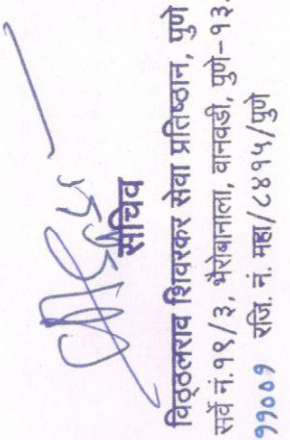 सचिव
विठ्ठलराव शिवरकर सेवा प्रतिष्ठान, पुणे
सर्वे नं.१९/३, भैरोबानाला, वानवडी, पुणे-१३.
११००१ रजि. नं. महा/८४१५/पुणे